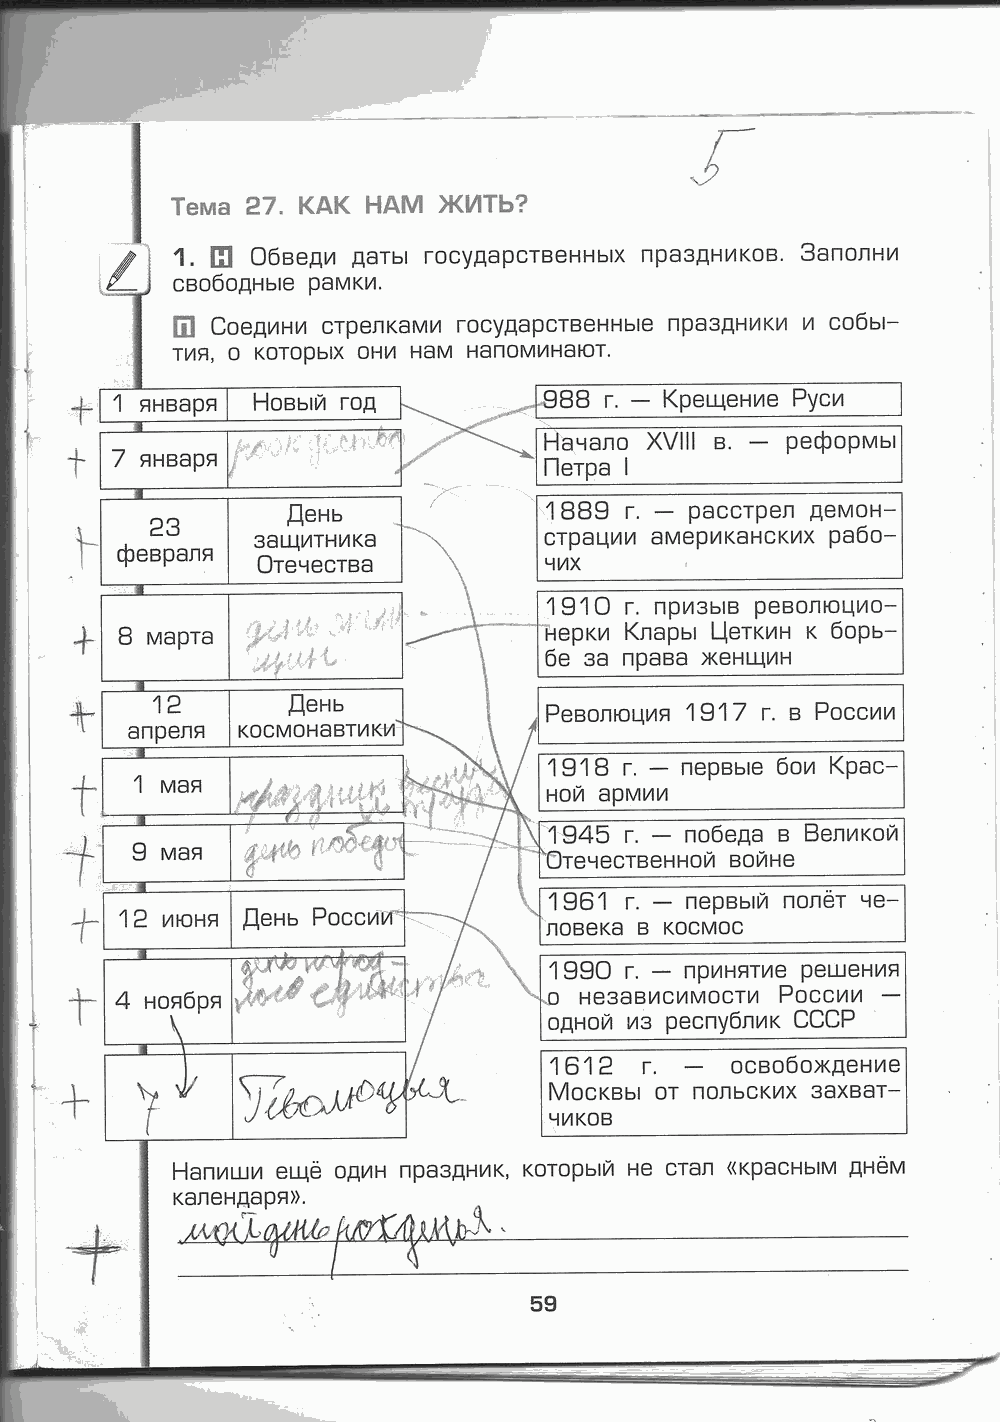 5
Тема 27. КАК НАМ ЖИТЬ?
1. Н Обведи даты государственных праздников. Заполни
свободные рамки.
П Соедини стрелками государственные праздники и собы-
тия, о которых они нам напоминают.
+ 1 января Новый год
+ 7 января рождество
+ 23 февраля День защитника Отечества
+ 8 марта день жен-
щин
+ 12 апреля День космонавтики
+ 1 мая праздник весни
и труда
+ 9 мая день победы
+ 12 июня День России
+ 4 ноября день народ-
ного единства
+ 7 Революцыя
988 г. — Крещение Руси
Начало XVIII в. — реформы
Петра I
1889 г. — расстрел демон-
страции американских рабо-
чих
1910 г. призыв революцио-
нерки Клары Цеткин к борь-
бе за права женщин
Революция 1917 г. в России
1918 г. — первые бои Крас-
ной армии
1945 г. — победа в Великой
Отечественной войне
1961 г. — первый полёт че-
ловека в космос
1990 г. — принятие решения
о независимости России —
одной из республик СССР
1612 г. — освобождение
Москвы от польских захват-
чиков
Напиши ещё один праздник, который не стал «красным днём
календаря».
+ мой день рожденья.
59